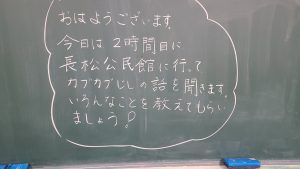 おはようございます.
今日は2時間目に
長松公民館に行って
カブカブじしの話を聞きます.
いろんなことを教えてもらい
ましょう!